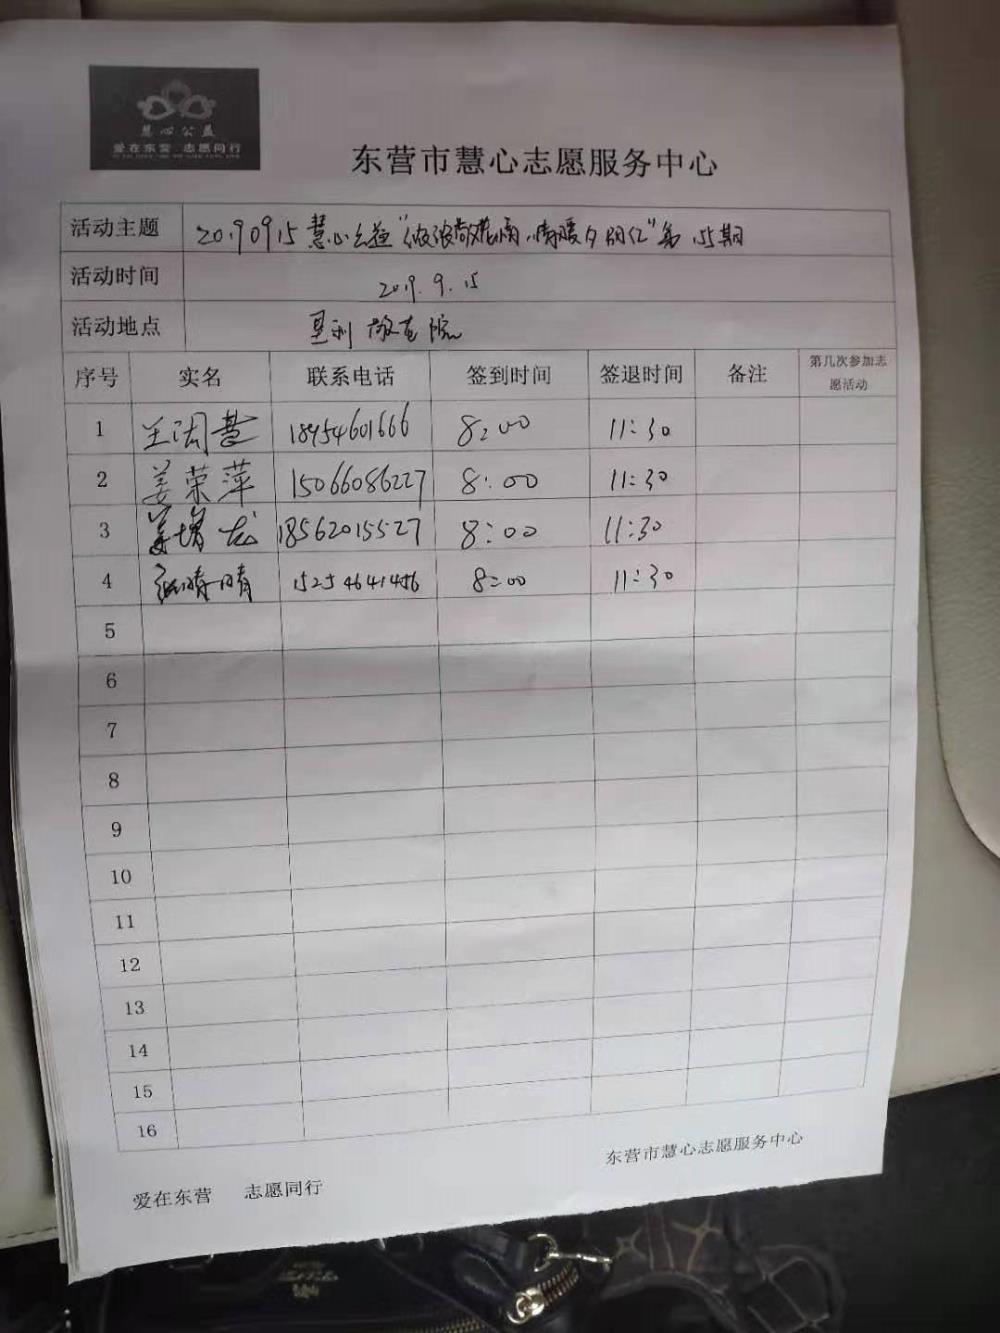 慧心公益
爱在东营 志愿同行
东营市慧心志愿服务中心
活动主题 20190915慧心公益“浓浓敬老情,情暖夕阳红”第15期
活动时间 2019.9.15
活动地点 垦利敬老院
序号 实名 联系电话 签到时间 签退时间 备注 第几次参加志愿活动
1 王闰慧 18954601666 8:00 11:30
2 姜荣萍 15066086227 8:00 11:30
3 姜增龙 18562015527 8:00 11:30
4 张晴晴 15254641456 8:00 11:30
5
6
7
8
9
10
11
12
13
14
15
16
东营市慧心志愿服务中心
爱在东营 志愿同行